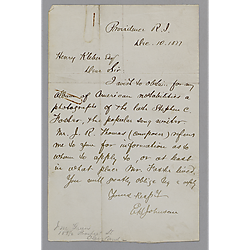 Providence R.I.
Dec. 10. 1877
Henry Kleber Esq
Dear Sir
I wish to obtain for my
album of American notabilities a
photograph of the late Stephen C.
Foster, the popular song writer.
Mr. J. R. Thomas (composer) refers
me to you for information as to
whom to apply to, or at least
in what place Mr. Foster lived.
You will greatly oblige by a reply
Yours Resp'y
E Johnson